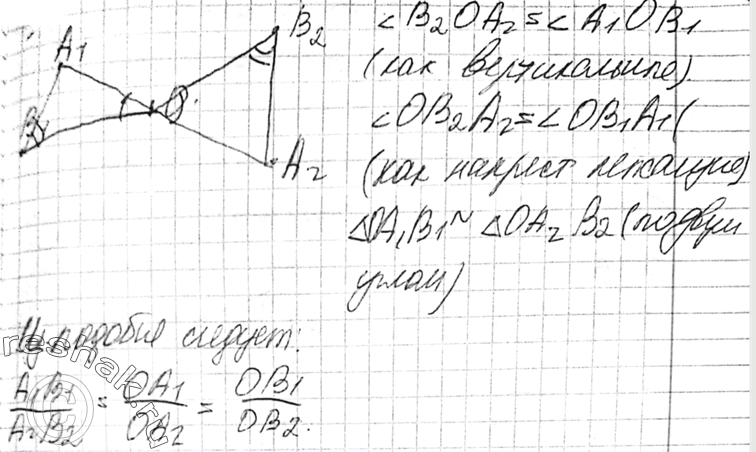 A₁
B₂
B₁
O
A₂
∠B₂OA₂=∠A₁OB₁
(как вертикальные).
∠OB₂A₂=∠OB₁A₁(
(как накрест лежащие)
△OA₁B₁~△OA₂B₂(по двум
углам)
Из подобия следует:
A₁B₁/A₂B₂ = OA₁/OB₂ = OB₁/OB₂.
reshak.ru